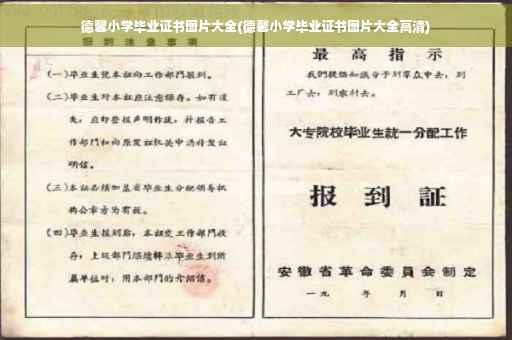 德馨小学毕业证书图片大全(德馨小学毕业证书图片大全高清)
报到注意事项
(一)毕业生凭本証向工作部門报到。
(二)毕业生对本証应注意保存。如有遗
失，应即登报声明作废，并报告工
作部門和向原发証机关申請补发証
明信。
(三)本証必须加盖省毕业生分配领导机
构公章方为有效。
(四)毕业生报到后，本証交工作部門收
存；上級部門
毕业生到所
属单位时，用本部門的介紹信。
最高指示
我們提倡知識分子到羣众中去，到
工厂去，到农村去。
大专院校毕业生統一分配工作
报到証
安徽省革命委員会制定
一九 年 月 日